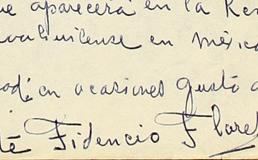 ue aparecerá en la Re
valuitense en méxico
en ocasiones gusto a
té Fidencio Flores